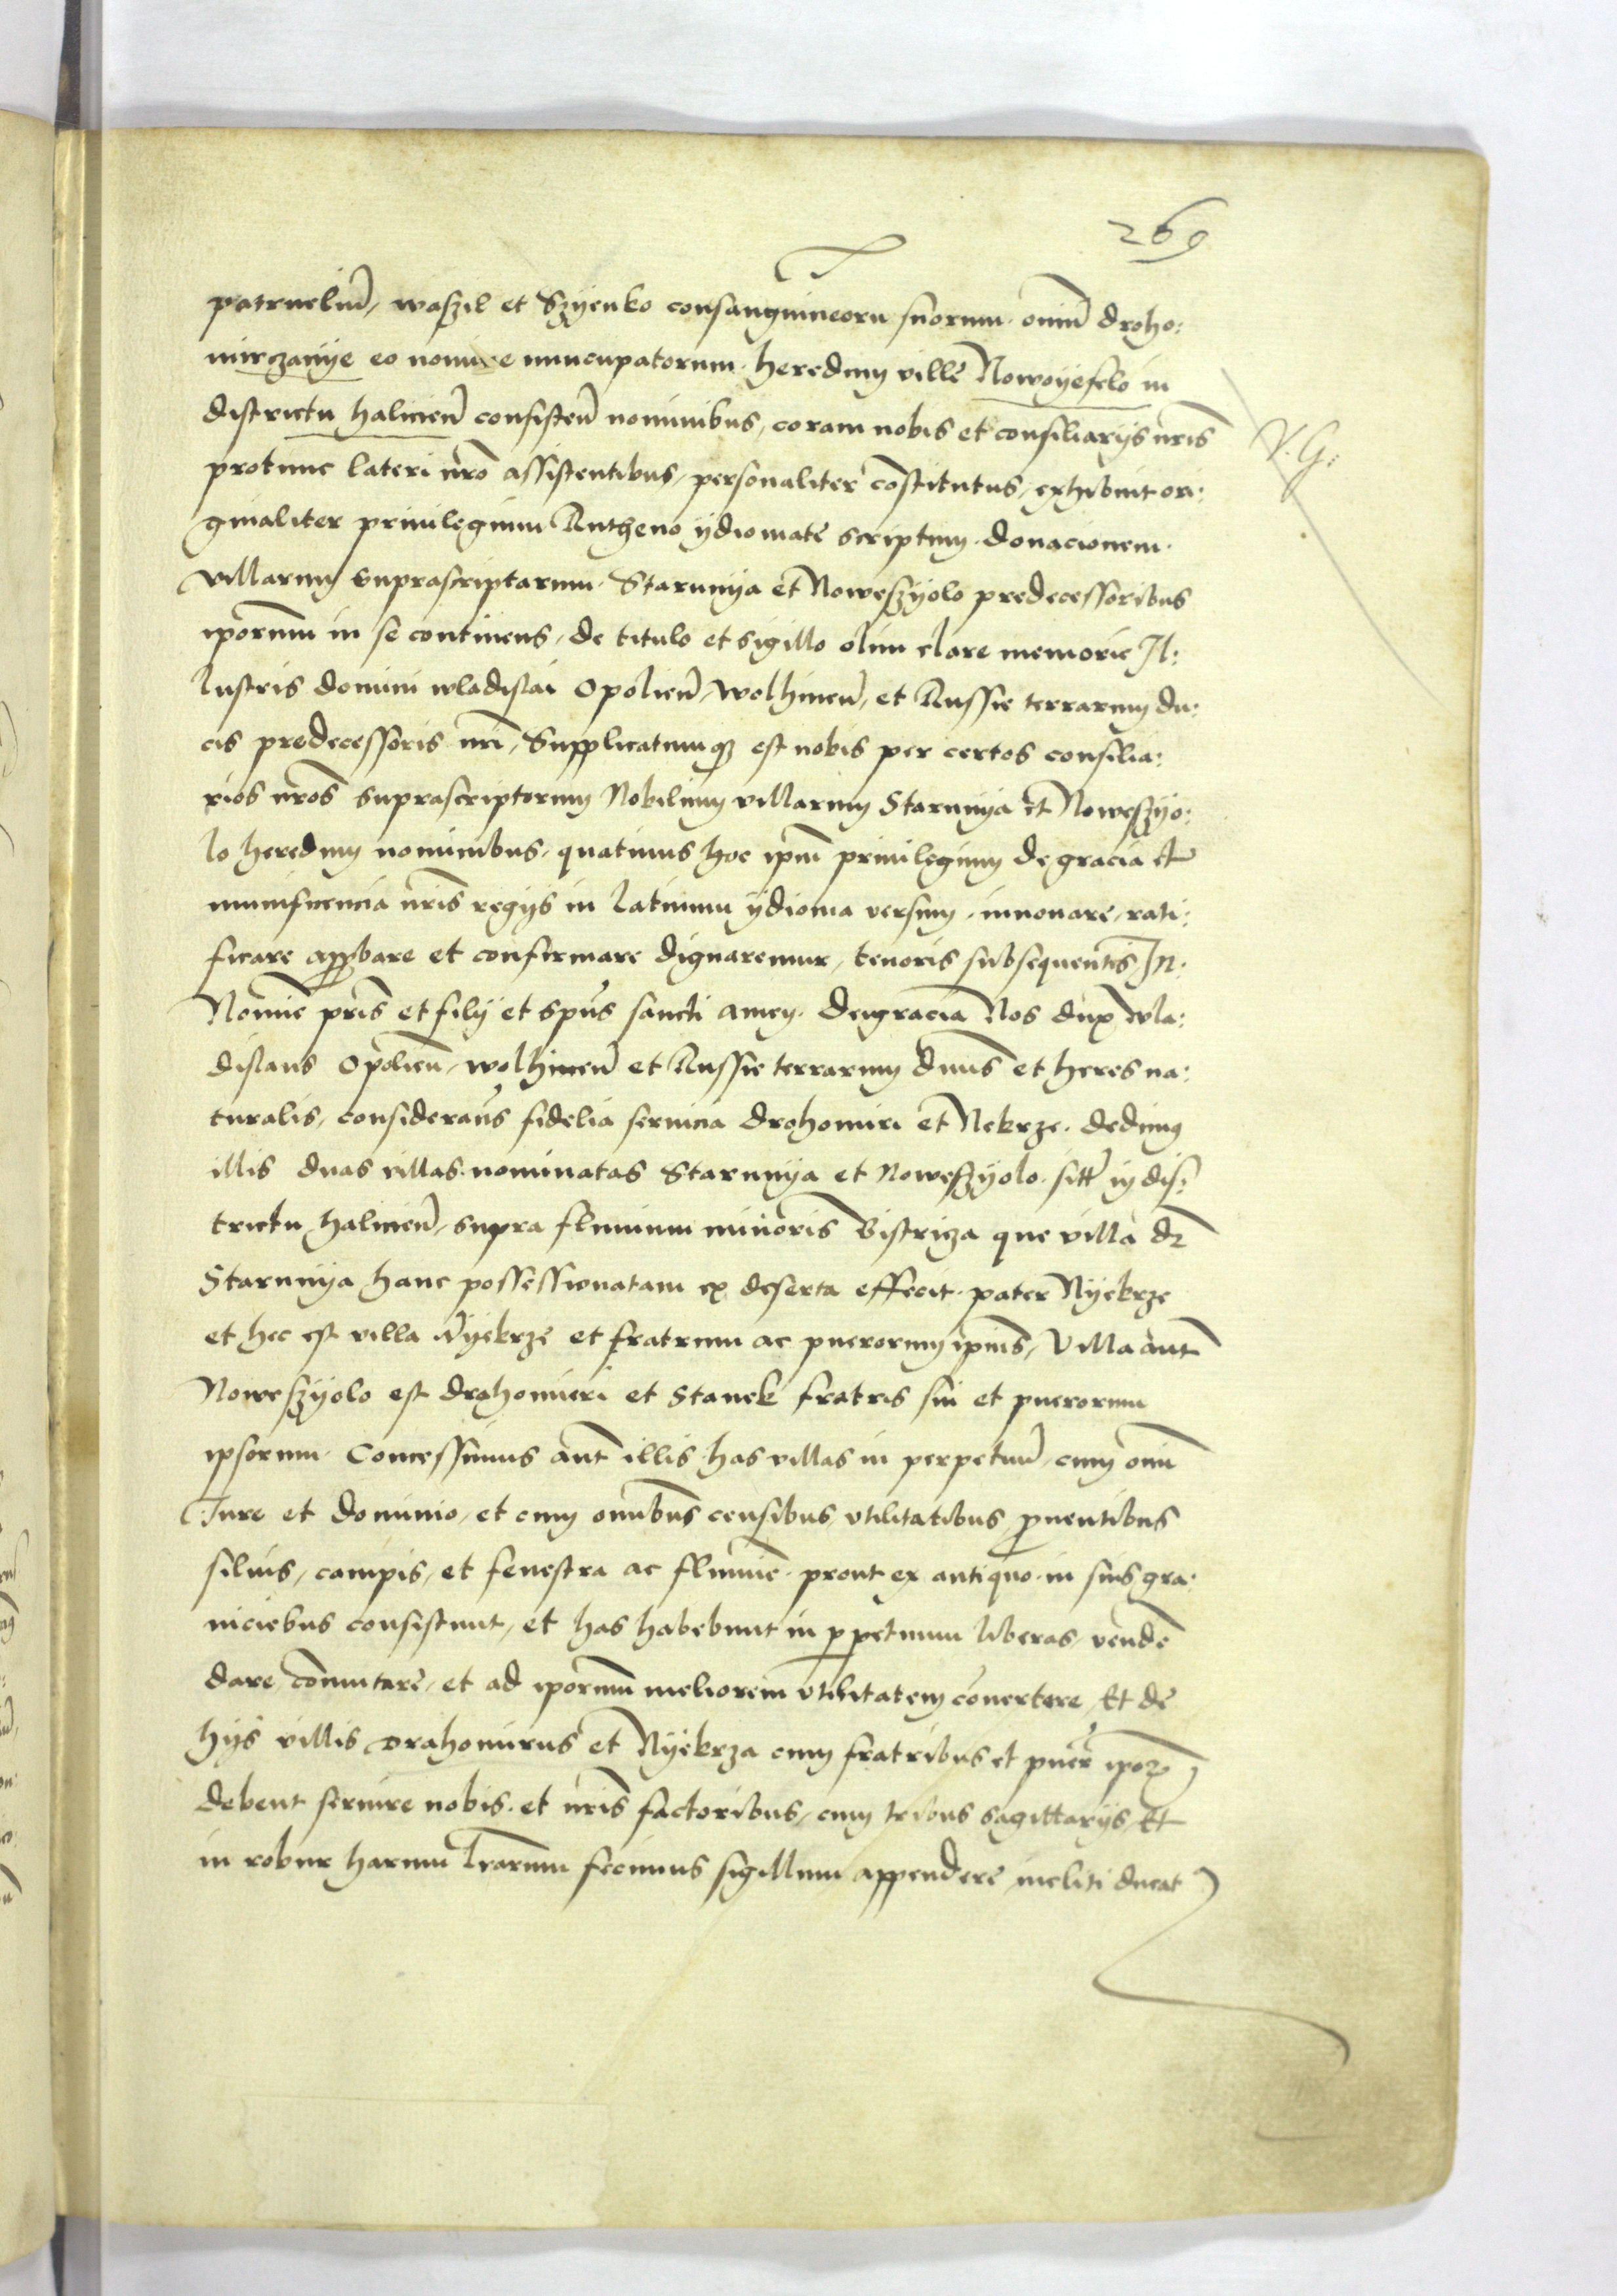 269
patrueliu͂, waszil et Szyenko consanguineoru suorum. oīm̄ droho:
mirczanye eo nomine nuncupatorum. heredum ville Nowoyeselo in
districtu halicien̄ consisten̄ nominibus, coram nobis et consiliarijs nr̄is
V. G:
protunc lateri nr̄o assistentibus, personaliter cōstitutus, exhibuit ori:
ginaliter priuilegium Rutheno ydiomate scriptum. donacionem.
villarum suprascriptarum. Starunya et Noweszyolo predecessoribus
ip̄orum in se continens, de titulo et sigillo olim clare memorie Il:
lustris domini wladislai Opolien̄, wolhinen̄, et Russie terrarum du:
cis predecessoris nr̄i, Supplicatumq̄ est nobis per certos consilia:
rios nr̄os suprascriptorum Nobilium villarum Starunya et Noweszyo:
lo heredum nominibus, quatinus hoc ip̄m priuilegium de gracia et
munificencia nr̄is regijs in latinum ydioma versum, innouare, rati:
ficare app̄bare et confirmare dignaremur, tenoris subsequentis In:
Nomīe pr̄is et filij et sp̄us sancti amen. Dei gracia Nos dux wla:
dislaus Opolien̄, wolhinen̄ et Russie terrarum dn̄us et heres na:
turalis, consideran̄s fidelia seruicia Drohomiri et Nekrze. dedimus
illis duas villas. nominatas Starunya et Noweszyolo. sitt̄ in dis:
trictu halicien̄, supra fluuium minoris Bistriza que villa dz
Starunya hanc possessionatam ex deserta effecit. pater Nyekrze
et hec est villa Nyekrze et fratrum ac puerorum ip̄ius, Villa aut̄
Noweszyolo est drahomieri et Stanek fratris sui et puerorum
ipsorum. Concessimus aut̄ illis has villas in perpetuu͂, cum om̄i
Iure et dominio, et cum om̄ibus censibus, vtilitatibus p̄uentibus
siluis, campis, et fenestra ac flumīe. prout ex antiquo. in suis gra:
niciebus consistunt, et has habebunt in p̄petuum liberas, vendē
dare cōmutare, et ad ip̄orum meliorem vtilitatem cōuertere, Et de
hijs villis Drahomirus et Nyekrza cum fratribus et puer̄ ipoꝝ
debent seruire nobis. et nr̄is factoribus, cum tribus sagittarijs, Et
in robur harum lr̄arum fecimus sigillum appendere incliti ducat